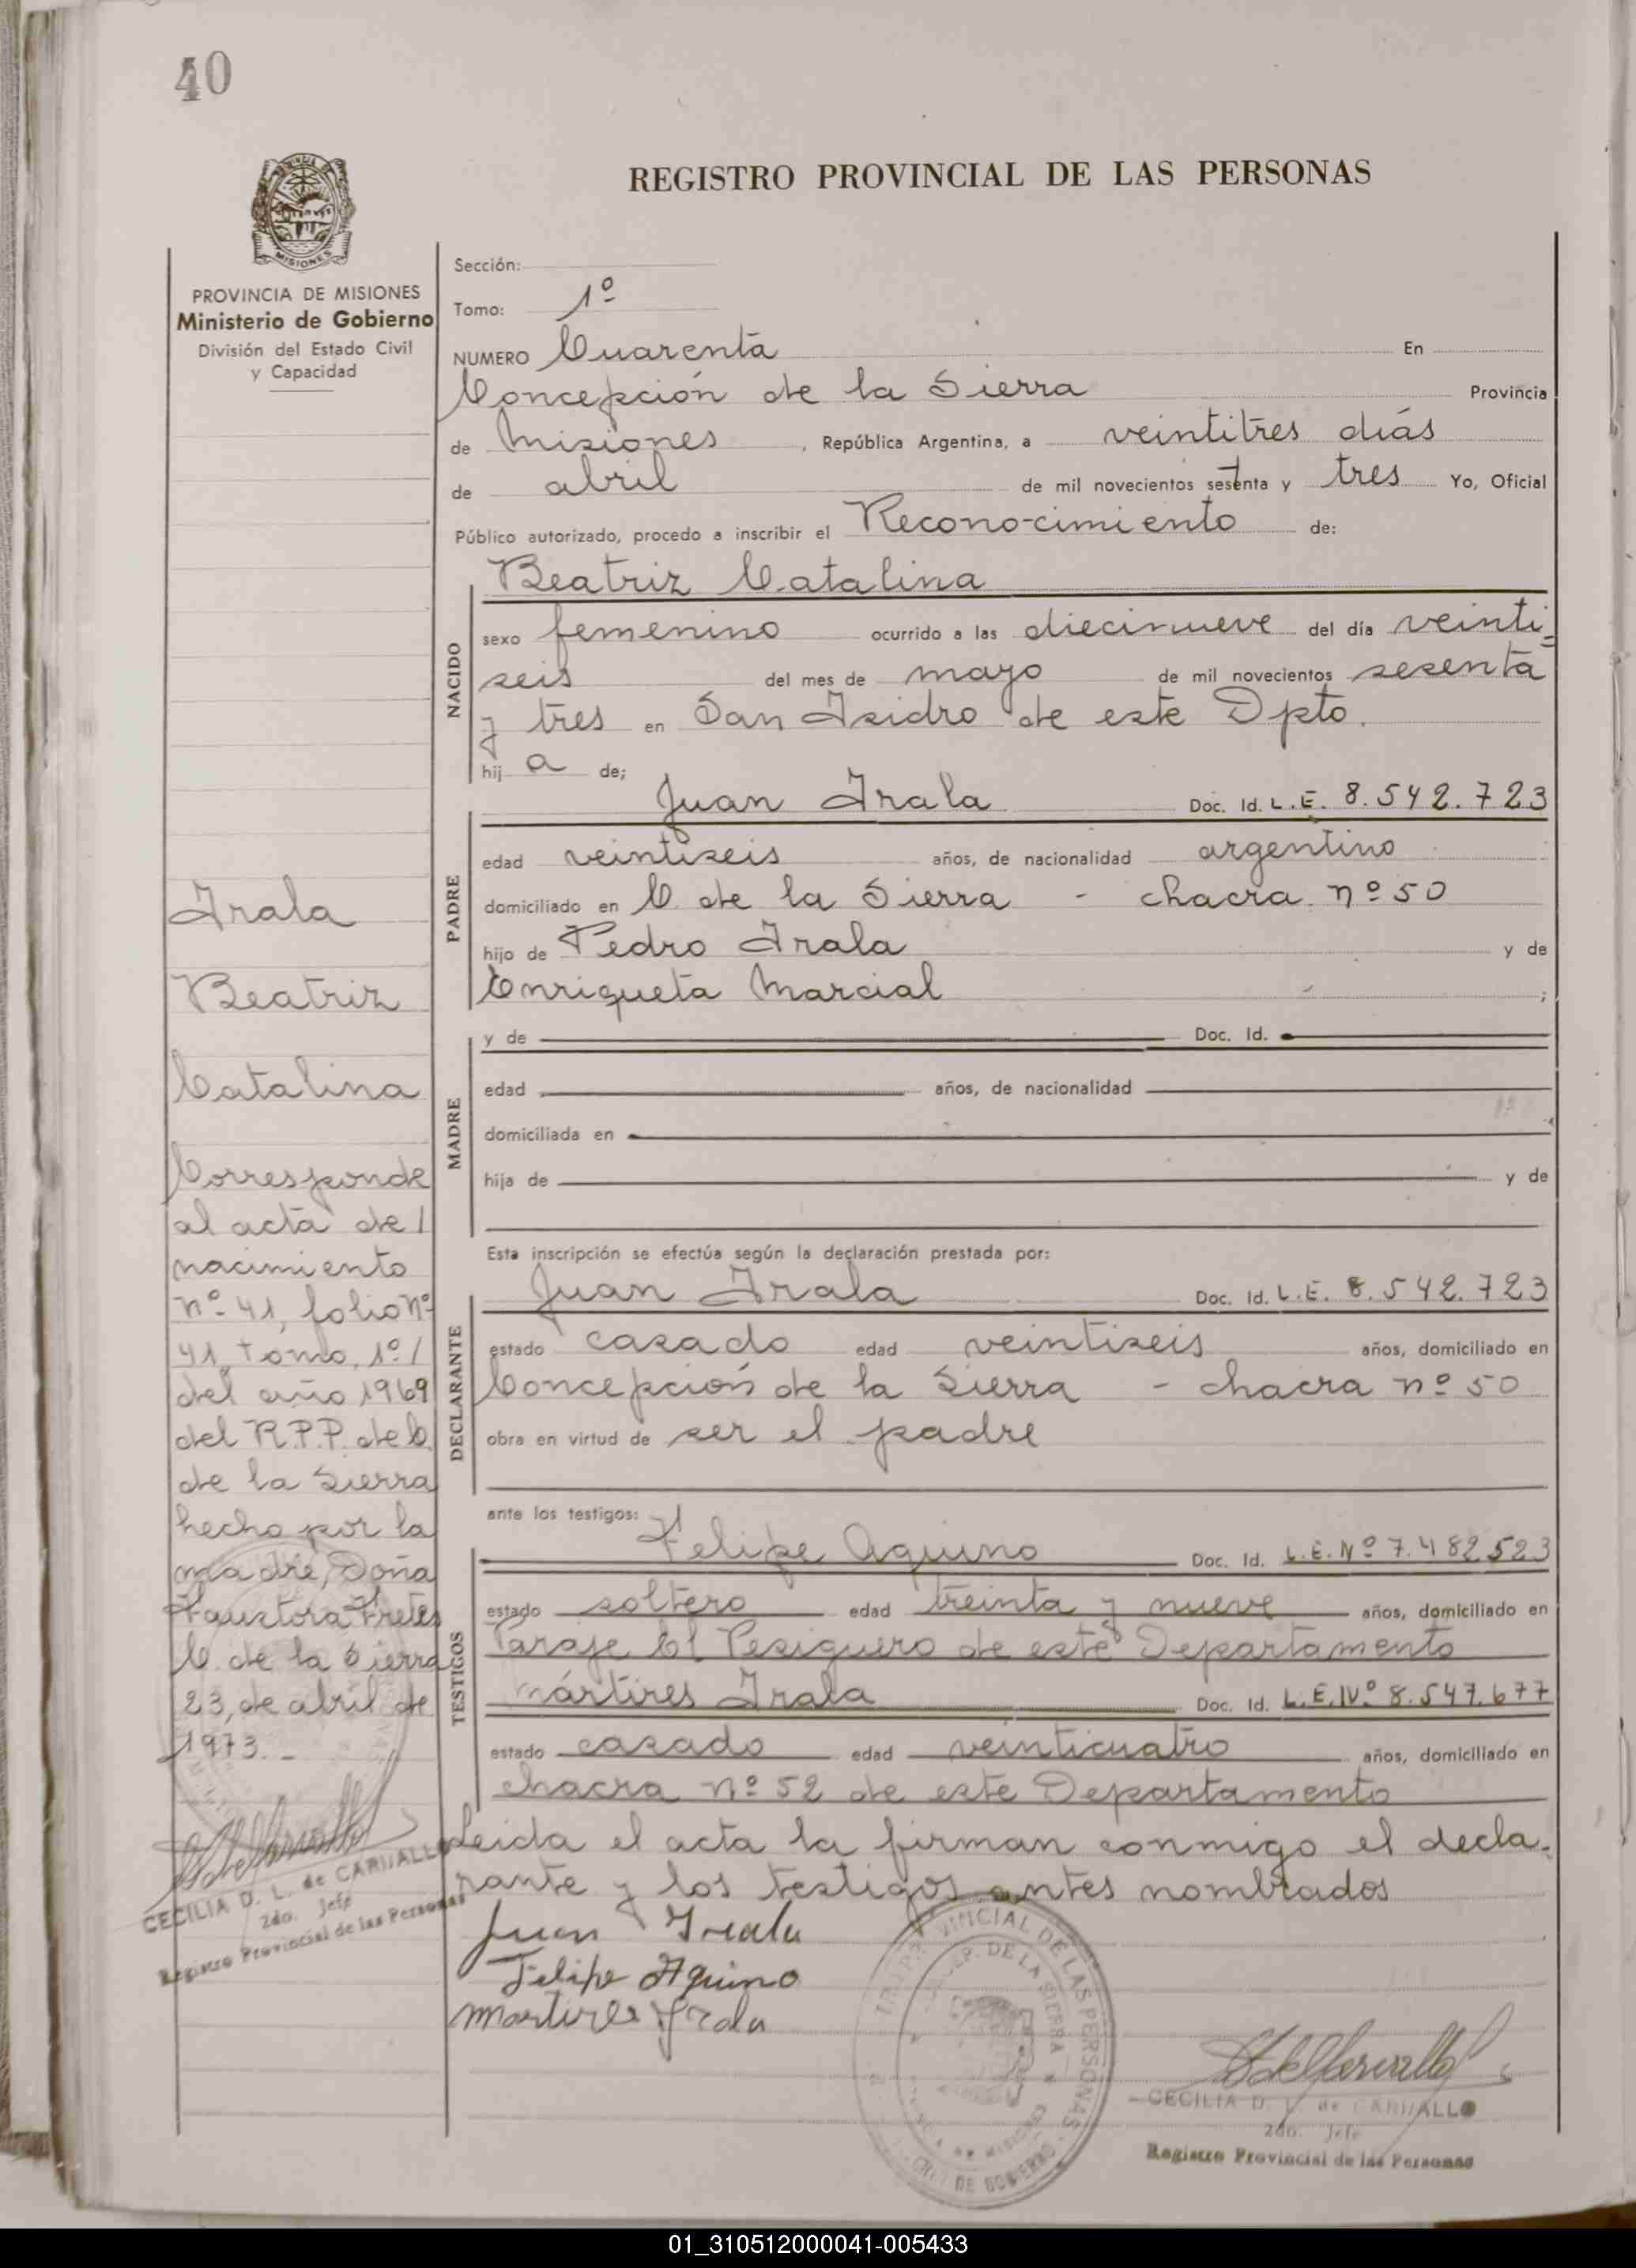 40
REGISTRO PROVINCIAL DE LAS PERSONAS
MISIONES
PROVINCIA DE MISIONES
Ministerio de Gobierno
División del Estado Civil
y Capacidad
Irala
Beatriz
Catalina
Corresponde
al acta de/
nacimiento
nº 41, folio nº
41, Tomo, 1º/
del año 1969
del R.P.P. de C.
de la Sierra
hecho por la
madre, Doña
Faustora Fretes
C. de la Sierra
23, de abril de
1973.-
CECILIA D. L. de CARVALLO
2do. Jefe
Registro Provincial de las Personas
Sección:
Tomo: 1º
NUMERO Cuarenta En
Concepción de la Sierra Provincia
de Misiones, República Argentina, a veintitres días
de abril de mil novecientos setenta y tres Yo, Oficial
Público autorizado, procedo a inscribir el Reconocimiento de:
Beatriz Catalina
NACIDO
sexo femenino ocurrido a las diecinueve del día veinti=
seis del mes de mayo de mil novecientos sesenta
y tres en San Isidro de este Dpto.
hij a de;
Juan Irala Doc. Id. L.E. 8.542.723
PADRE
edad veintiseis años, de nacionalidad argentino
domiciliado en C. de la Sierra - chacra nº 50
hijo de Pedro Irala y de
Enriqueta Marcial ;
MADRE
y de Doc. Id.
edad años, de nacionalidad
domiciliada en
hija de y de
Esta inscripción se efectúa según la declaración prestada por:
Juan Irala Doc. Id. L.E. 8.542.723
DECLARANTE
estado casado edad veintiseis años, domiciliado en
Concepción de la Sierra - chacra nº 50
obra en virtud de ser el padre
ante los testigos:
Felipe Aquino Doc. Id. L.E.Nº 7.482.523
TESTIGOS
estado soltero edad treinta y nueve años, domiciliado en
Paraje El Persiguero de este Departamento
Mártires Irala Doc. Id. L.E.Nº 8.547.677
estado casado edad veinticuatro años, domiciliado en
chacra nº 52 de este Departamento
Leida el acta la firman conmigo el decla-
rante y los testigos antes nombrados
Juan Irala
Felipe Aquino
Martires Irala
PROVINCIAL DE LAS PERSONAS
CONCEP. DE LA SIERRA
DE GOBIERNO
CECILIA D. L. de CARVALLO
2do. Jefe
Registro Provincial de las Personas
01_310512000041-005433